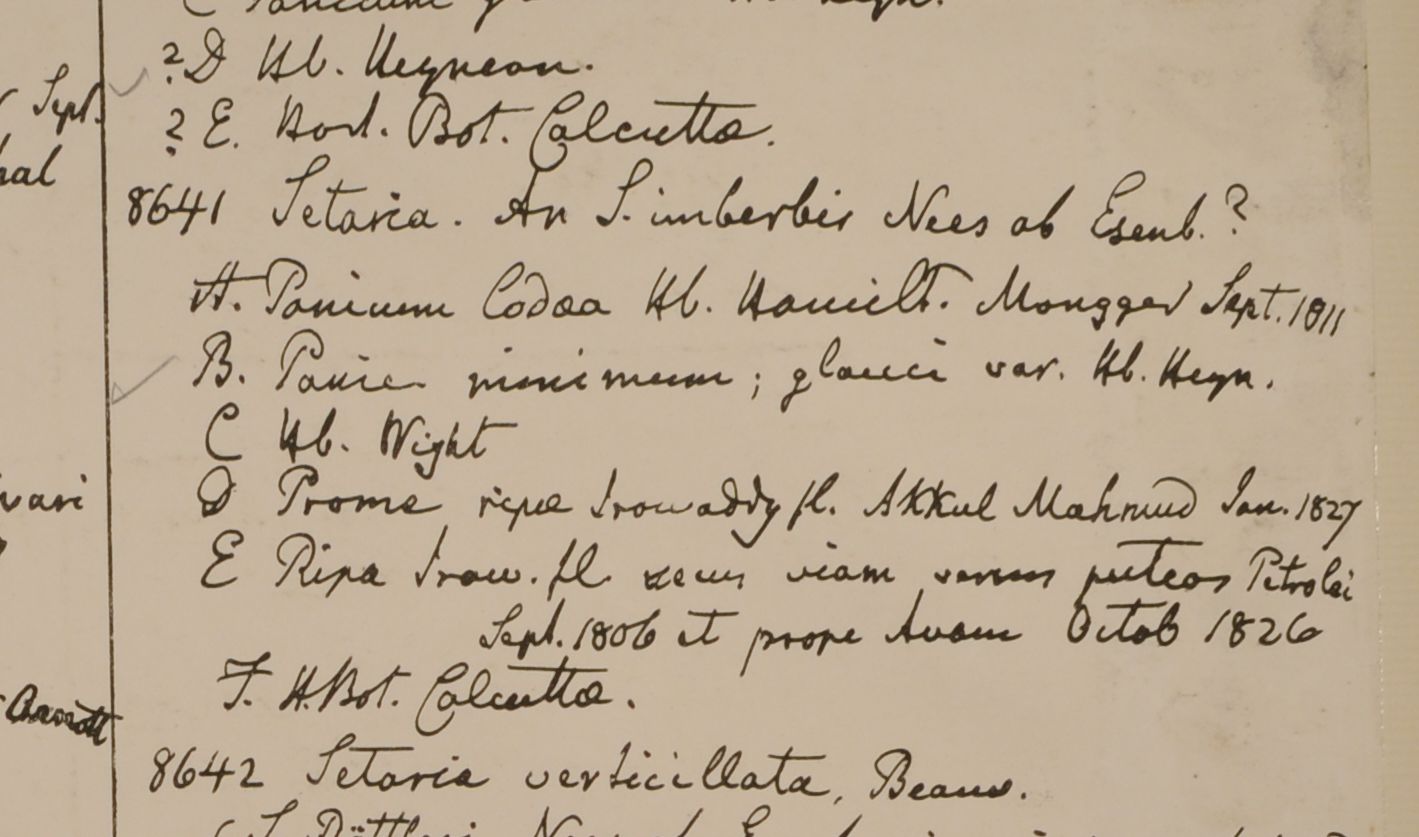 C Panicum
? D Hb. Heynean.
? E. Hort. Bot. Calcutta.
Sept.
8641 Setaria. An S. imberbis Nees ab Esenb.?
A. Panicum Codaa Hb. Hamilt. Mongger Sept. 1811
B. Panic minimum; glauci var. Hb. Heyn.
C Hb. Wight
D Prome ripa Irowaddy fl. Akkul Mahmud Jan. 1827
E Ripa Iraw. fl. secus viam versus puteos Petrolei
Sept. 1806 et prope Avam Octob 1826
F. H. Bot. Calcutta.
8642 Setaria verticillata, Beauv.
S. Röttleri Nees